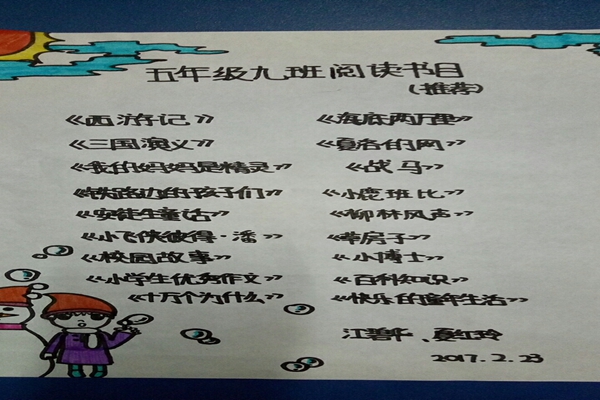 五年级九班阅读书目
(推荐)
《西游记》 《海底两万里》
《三国演义》 《夏洛的网》
《我的妈妈是精灵》 《战马》
《铁路边的孩子们》 《小鹿班比》
《安徒生童话》 《柳林风声》
《小飞侠彼得·潘》 《草房子》
《校园故事》 《小博士》
《小学生优秀作文》 《百科知识》
《十万个为什么》 《快乐的童年生活》
江碧华、夏红玲
2017.2.23